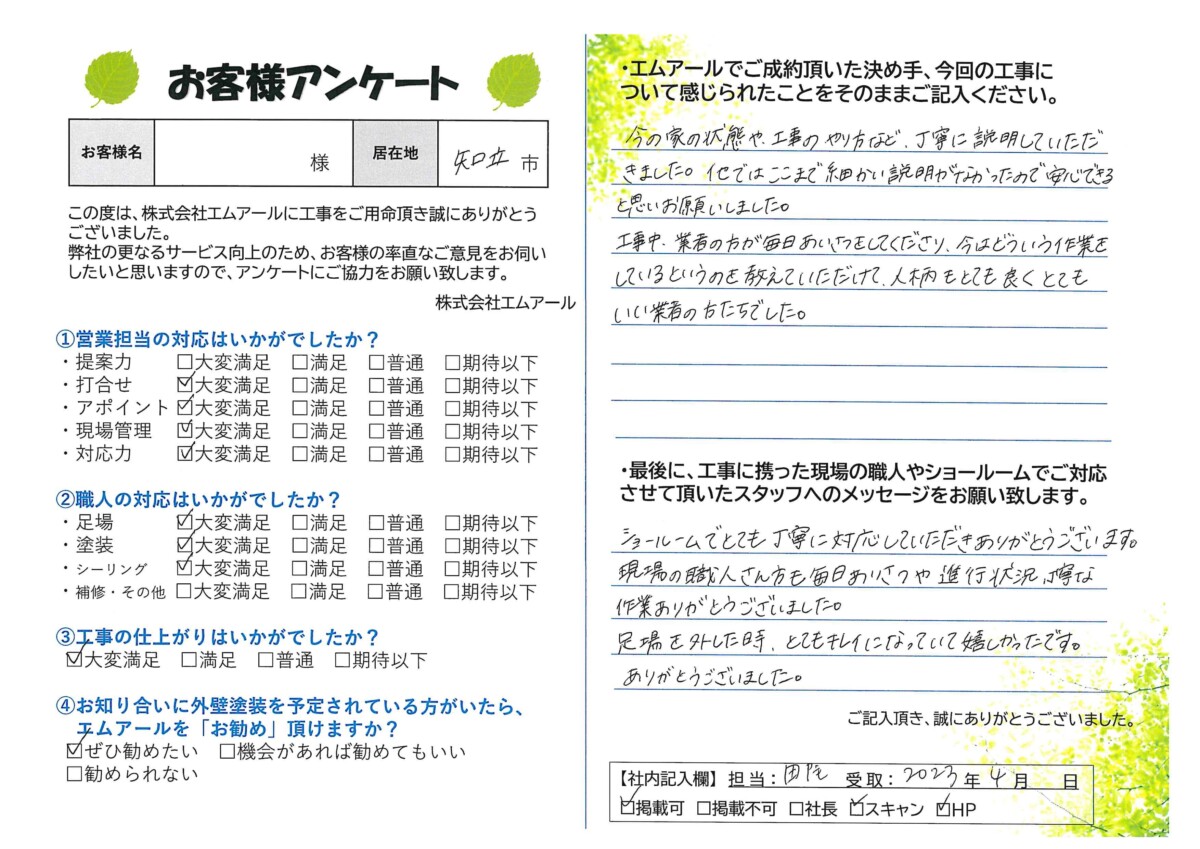 お客様アンケート
お客様名 様 居在地 知立 市
この度は、株式会社エムアールに工事をご用命頂き誠にありがとう
ございました。
弊社の更なるサービス向上のため、お客様の率直なご意見をお伺い
したいと思いますので、アンケートにご協力をお願い致します。
株式会社エムアール
①営業担当の対応はいかがでしたか？
・提案力 □大変満足 □満足 □普通 □期待以下
・打合せ ☑大変満足 □満足 □普通 □期待以下
・アポイント ☑大変満足 □満足 □普通 □期待以下
・現場管理 ☑大変満足 □満足 □普通 □期待以下
・対応力 ☑大変満足 □満足 □普通 □期待以下
②職人の対応はいかがでしたか？
・足場 ☑大変満足 □満足 □普通 □期待以下
・塗装 ☑大変満足 □満足 □普通 □期待以下
・シーリング ☑大変満足 □満足 □普通 □期待以下
・補修・その他 □大変満足 □満足 □普通 □期待以下
③工事の仕上がりはいかがでしたか？
☑大変満足 □満足 □普通 □期待以下
④お知り合いに外壁塗装を予定されている方がいたら、
エムアールを「お勧め」頂けますか？
☑ぜひ勧めたい □機会があれば勧めてもいい
□勧められない
・エムアールでご成約頂いた決め手、今回の工事に
ついて感じられたことをそのままご記入ください。
今の家の状態や、工事のやり方など、丁寧に説明していただ
きました。他ではここまで細かい説明がなかったので安心できる
と思いお願いしました。
工事中、業者の方が毎日あいさつをしてくださり、今はどういう作業を
しているというのを教えていただけて、人柄もとても良くとても
いい業者の方たちでした。
・最後に、工事に携った現場の職人やショールームでご対応
させて頂いたスタッフへのメッセージをお願い致します。
ショールームでとても丁寧に対応していただきありがとうございます。
現場の職人さん方も毎日あいさつや進行状況丁寧な
作業ありがとうございました。
足場を外した時、とてもキレイになっていて嬉しかったです。
ありがとうございました。
ご記入頂き、誠にありがとうございました。
【社内記入欄】 担当： 受取：2023年 4月 日
☑掲載可 □掲載不可 □社長 ☑スキャン ☑HP